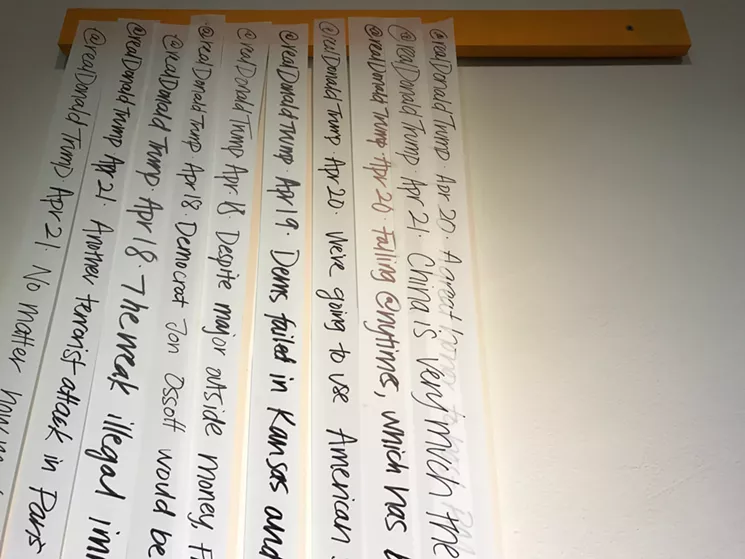 @realDonaldTrump · Apr 20 · A great honor to host
@realDonaldTrump · Apr 21 · China is very much the
@realDonaldTrump · Apr 20 · Failing @nytimes, which has
@realDonaldTrump · Apr 20 · We're going to use American
@realDonaldTrump · Apr 19 · Dems failed in Kansas and
@realDonaldTrump · Apr 18 · Despite major outside money, F
@realDonaldTrump · Apr 18 · Democrat Jon Ossoff would be
@realDonaldTrump · Apr 18 · The weak illegal imm
@realDonaldTrump Apr 21 · Another terrorist attack in Paris
@realDonaldTrump Apr 21 · No matter how m